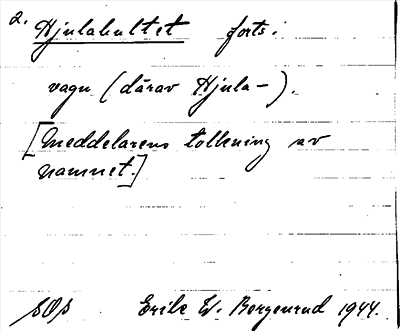 2. Hjulahultet forts.
vagn (därav Hjula-).
[Meddelarens tolkning av
namnet.]
SOS Erik W. Bergenrud 1944.